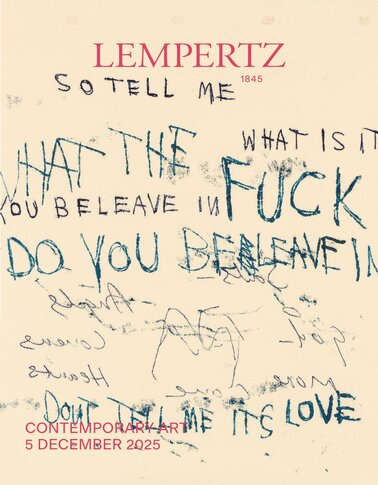 LEMPERTZ
1845
SO TELL ME
WHAT IS IT
WHAT THE
FUCK
YOU BELEAVE IN
DO YOU BELEAVE IN
Angels
God
Lovers
Hearts
more love
DONT TELL ME ITS LOVE
CONTEMPORARY ART
5 DECEMBER 2025